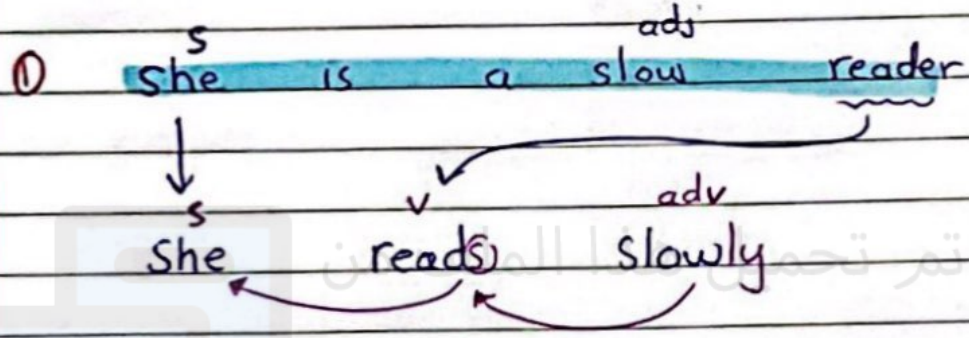 S adj
① She is a slow reader
S v adv
She reads slowly
تم تحميل هذا الملف من